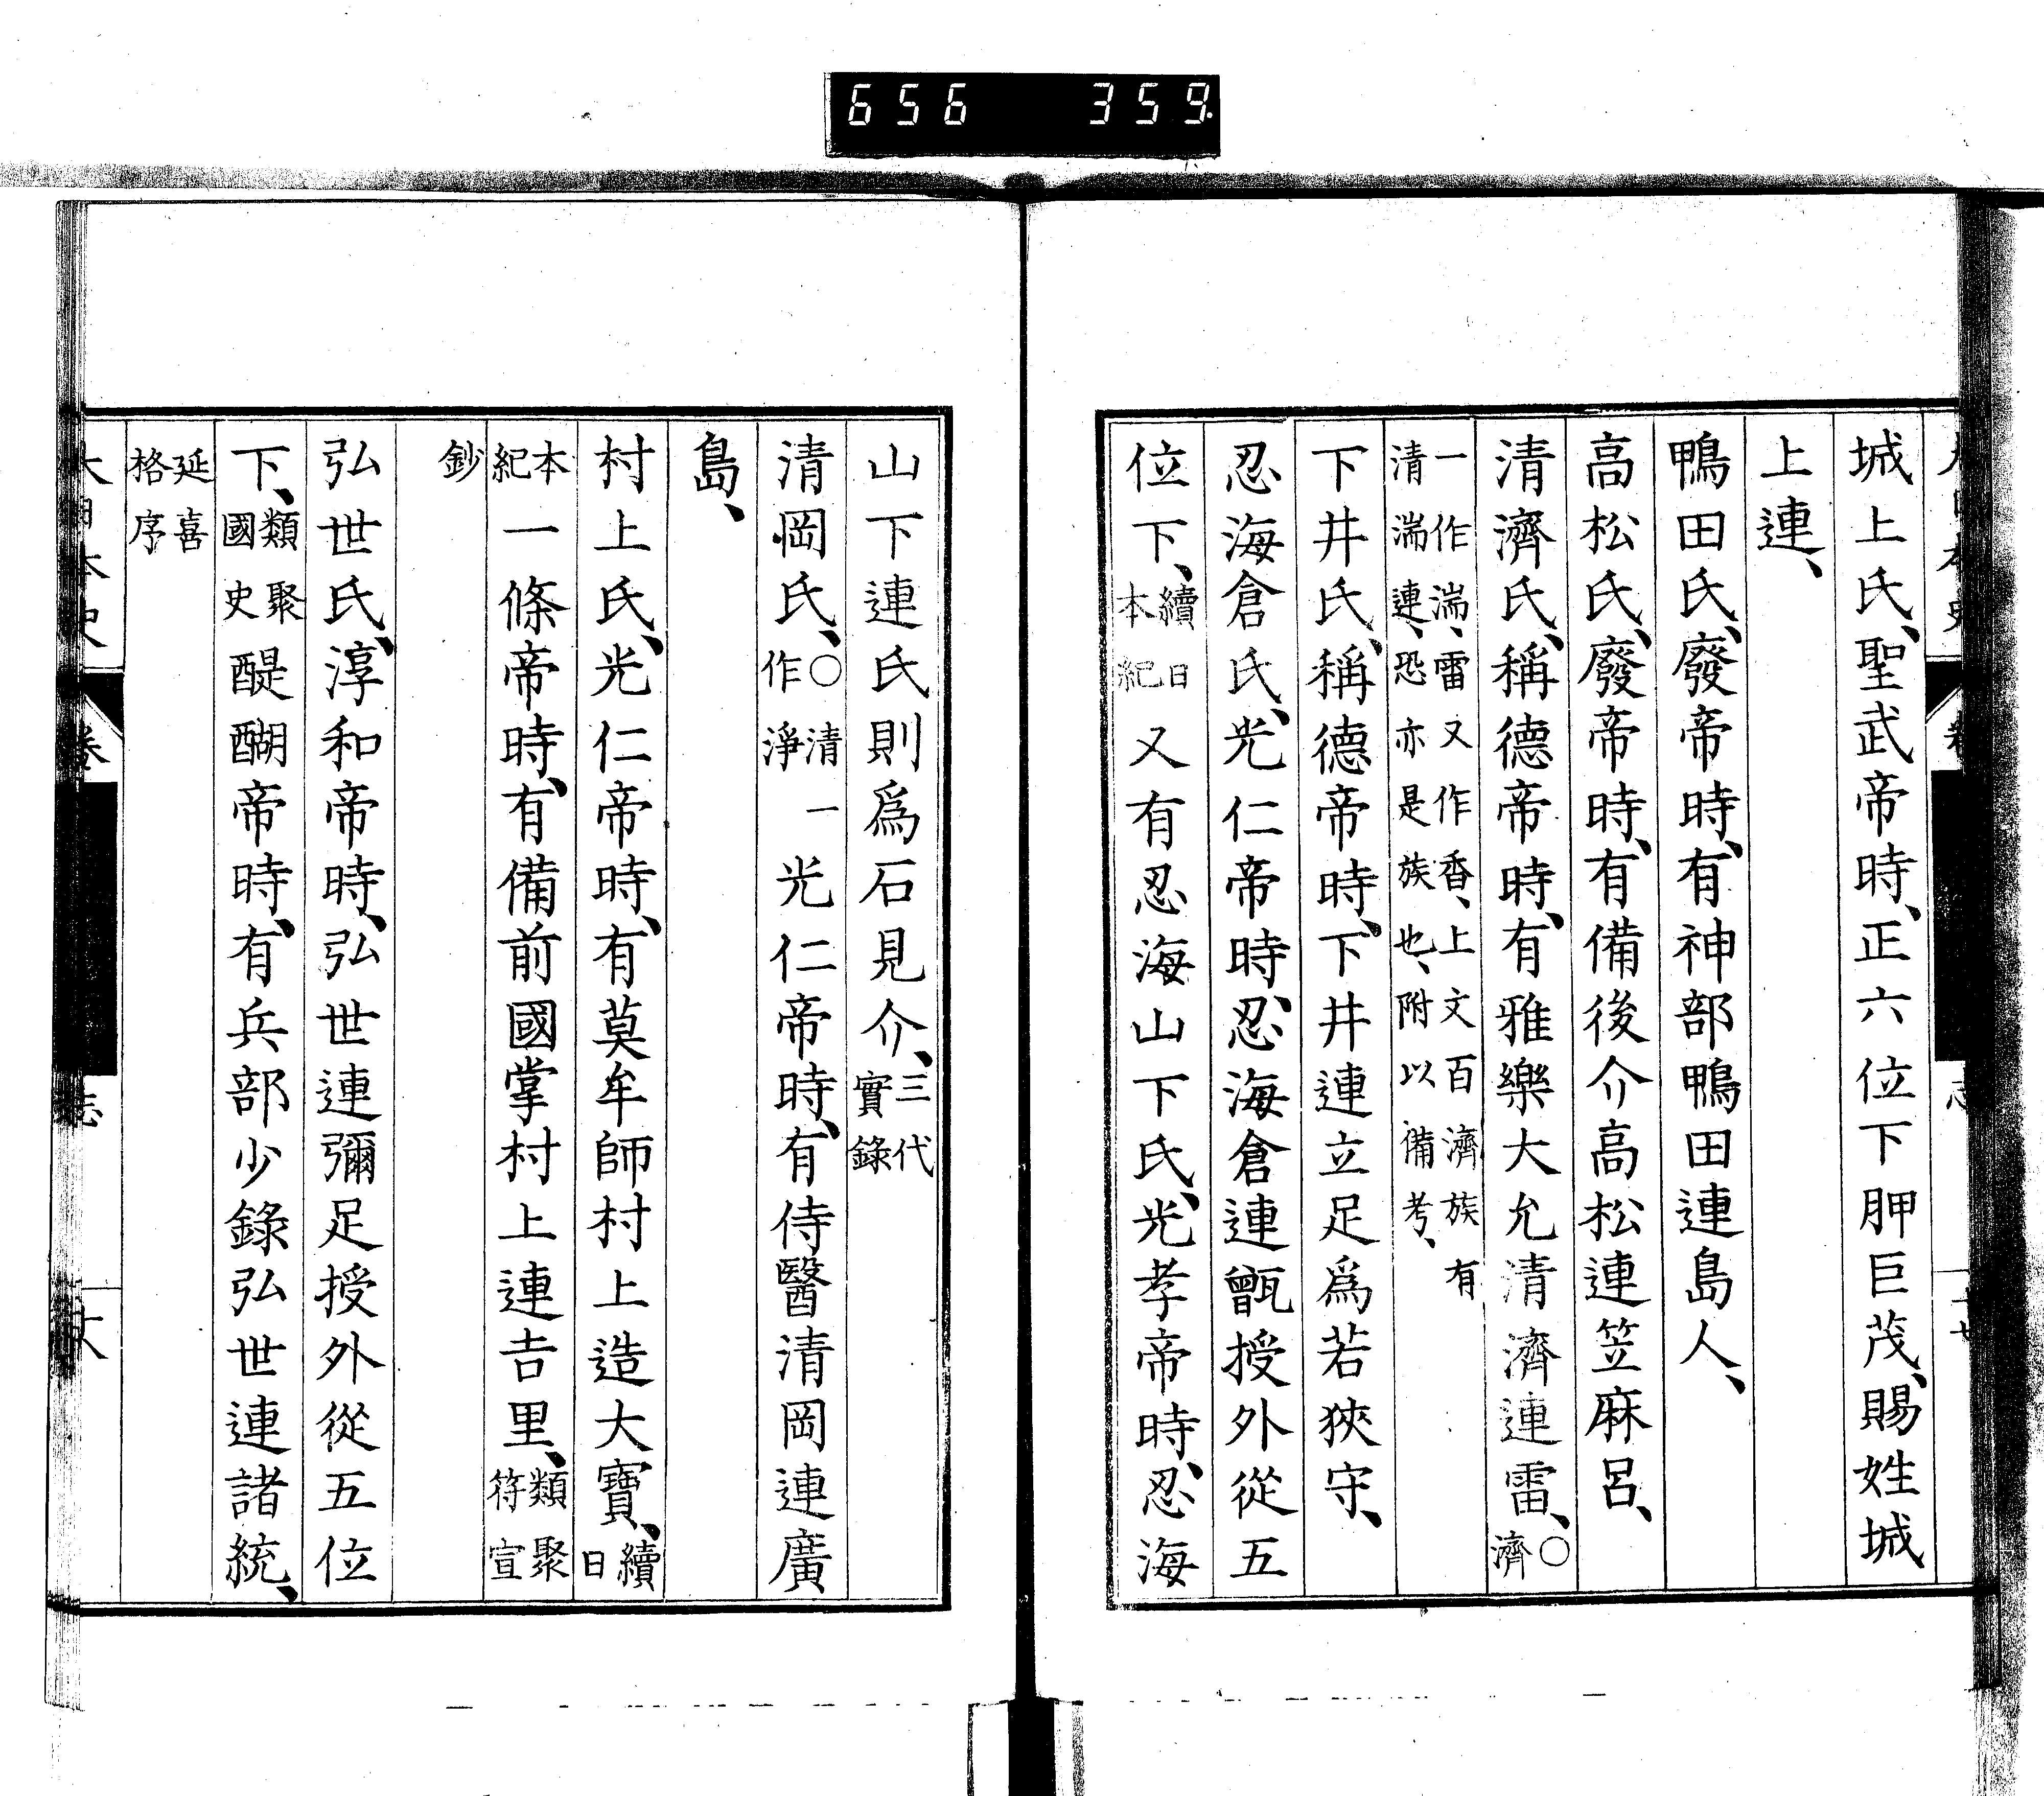 656 359
城上氏、聖武帝時、正六位下胛巨茂、賜姓城
上連、
鴨田氏、廢帝時、有神部鴨田連島人、
高松氏、廢帝時、有備後介高松連笠麻呂、
清濟氏、稱德帝時、有雅樂大允清濟連雷、○濟
一作湍、湍、雷又作香、上文百濟族有
清湍連、恐亦是族也、附以備考、
下井氏、稱德帝時、下井連立足爲若狹守、
忍海倉氏、光仁帝時、忍海倉連甑授外從五
位下、續日本紀又有忍海山下氏、光孝帝時、忍海
山下連氏則爲石見介、三代實錄
清岡氏、○清一作淨光仁帝時、有侍醫清岡連廣
島、
村上氏、光仁帝時、有莫牟師村上造大寶、續日
本紀一條帝時、有備前國掌村上連吉里、類聚符宣
鈔
弘世氏、淳和帝時、弘世連彌足授外從五位
下、類聚國史醍醐帝時、有兵部少錄弘世連諸統、
延喜格序
大日本史 卷 志 大